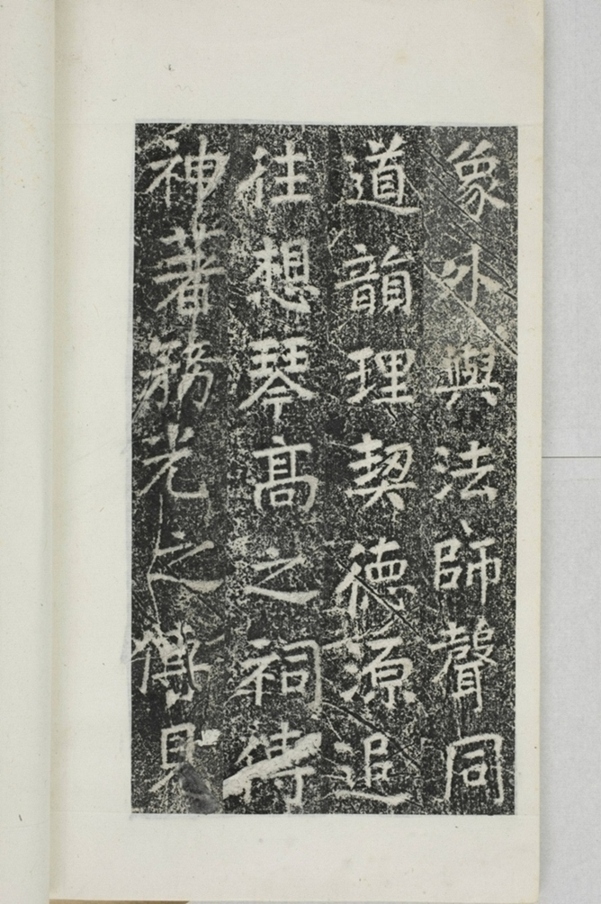 象外與法師聲同
道韻理契德源追
往想琴高之祠待
神著務光之傳見